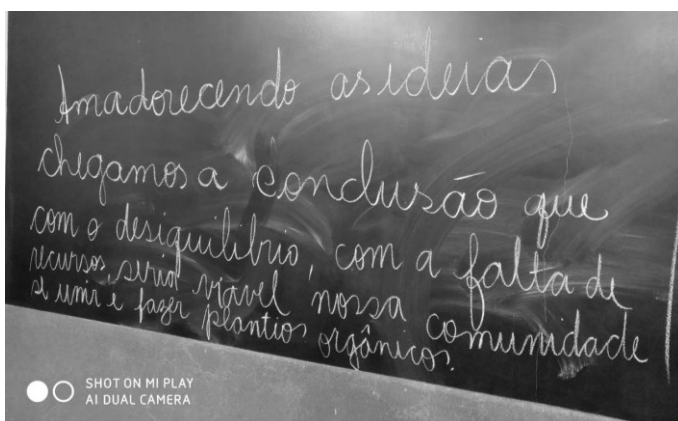 Amadorecendo as ideias
chegamos a conclusão que
com o desiquilibrio, com a falta de
recursos, seria viavel nossa comunidade
se unir e fazer plantios orgânicos.
SHOT ON MI PLAY
AI DUAL CAMERA